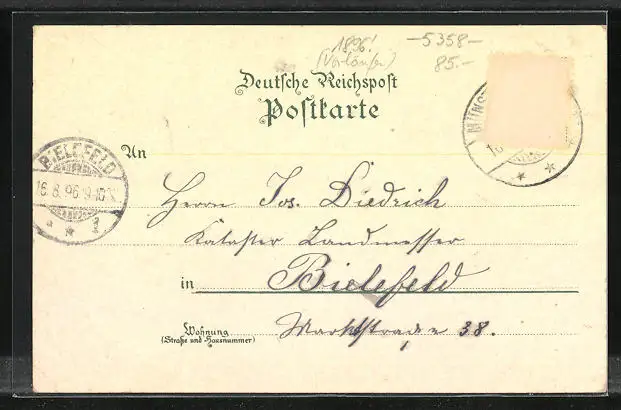 1896!
(Vorläufer)
-5358-
85.-
Deutsche Reichspost
Postkarte
MÜNST
BIELEFELD
16.8.96.9-10
An
Herrn Jos. Diedrich
Kataster Landmesser
in Bielefeld
Wohnung
(Straße und Hausnummer)
Marktstrasse 38.